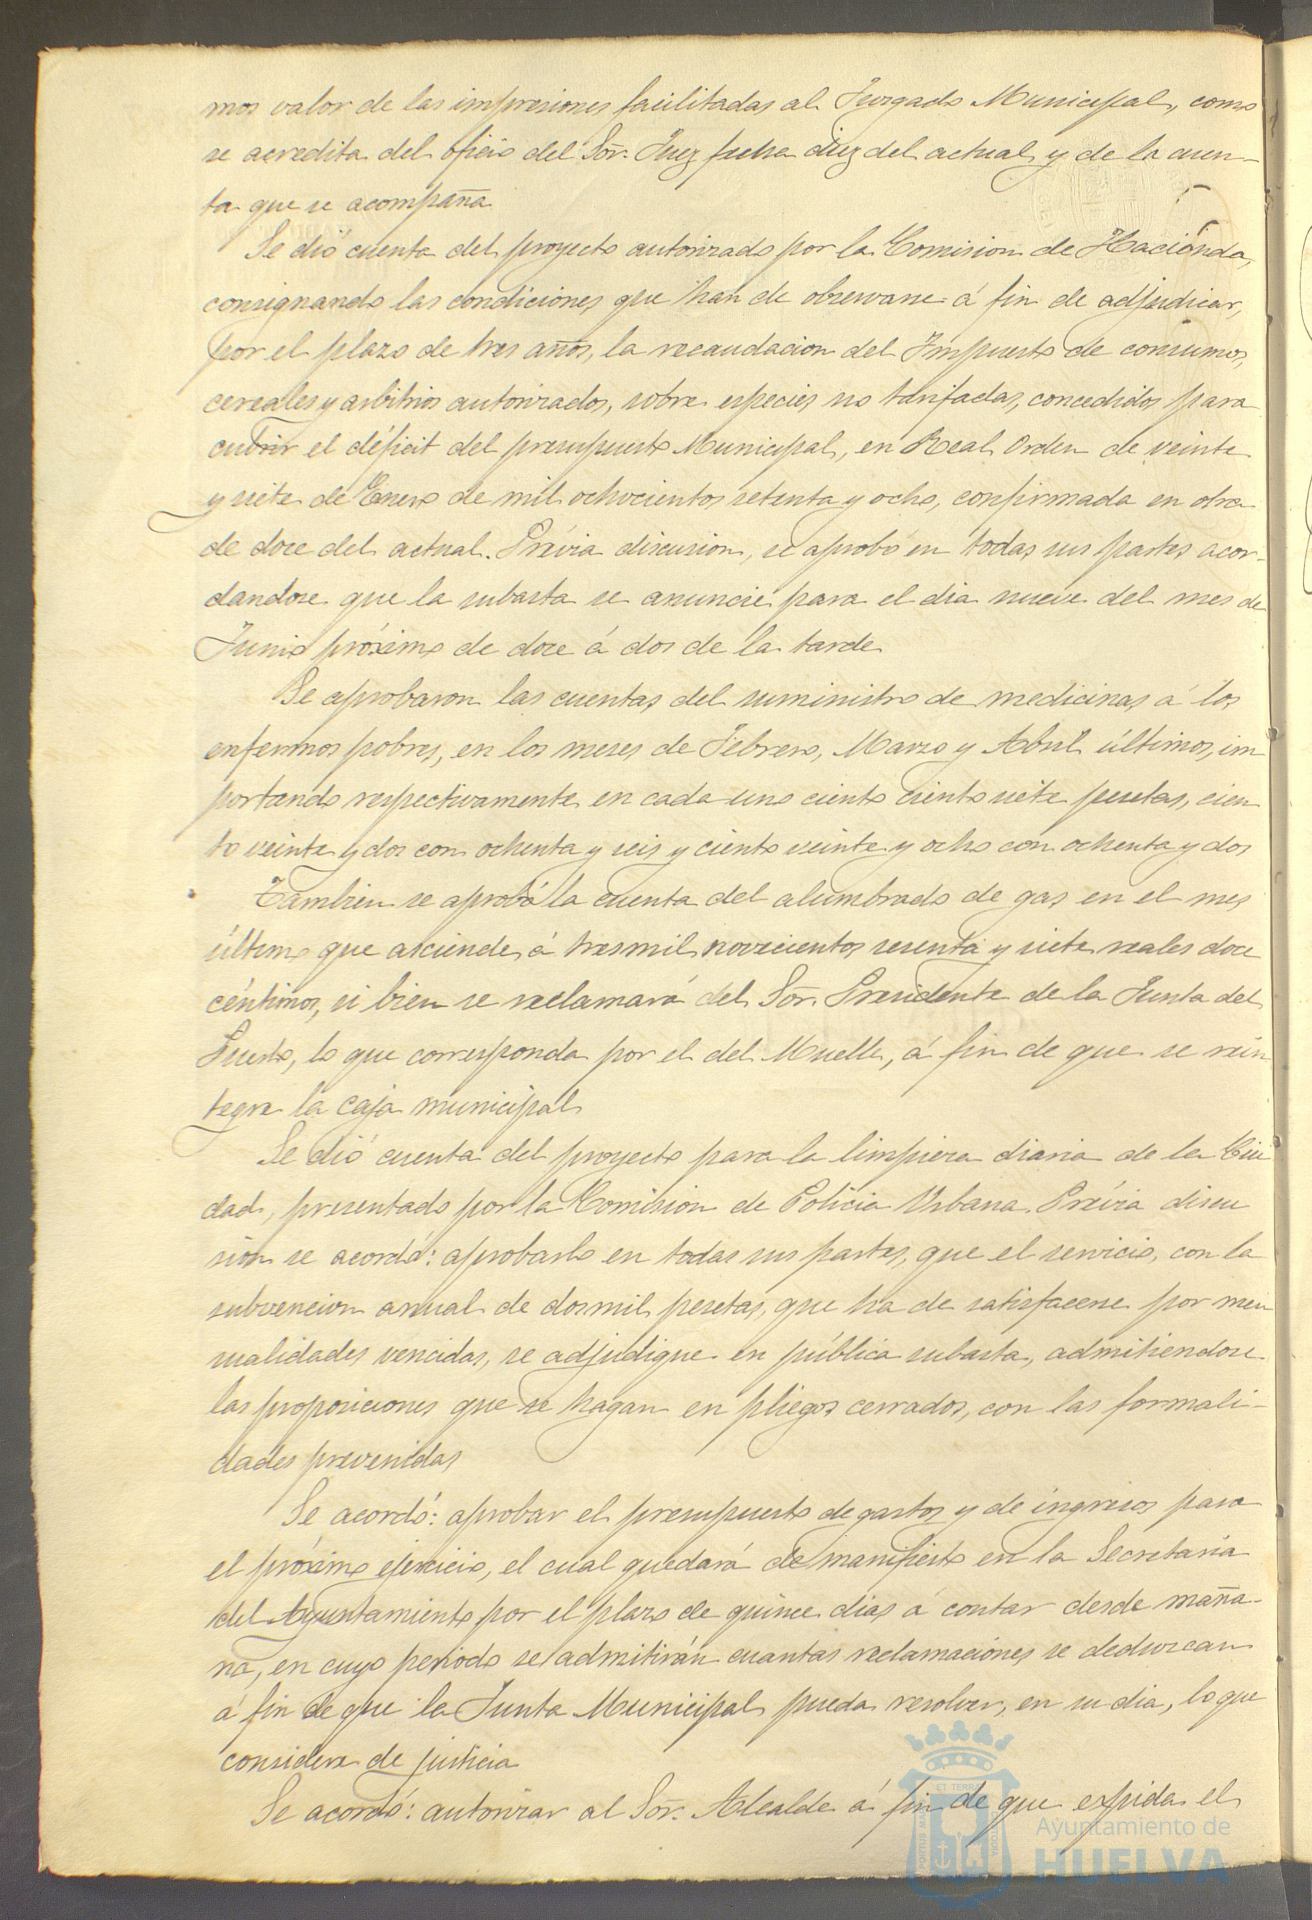 mos valor de las impresiones facilitadas al Juzgado Municipal, como
se acredita del oficio del Sõr. Juez fecha diez del actual y de la cuen-
ta que se acompaña
Se dió cuenta del proyecto autorizado por la Comision de Hacienda,
consignando las condiciones que han de observarse á fin de adjudicar,
por el plazo de tres años, la recaudacion del Impuesto de consumos,
cereales y arbitrios autorizados, sobre especies no tarifadas, concedidos para
cubrir el déficit del presupuesto Municipal, en Real Orden de veinte
y siete de Enero de mil ochocientos setenta y ocho, confirmada en otra
de doce del actual. Prévia discusion, se aprobó en todas sus partes acor-
dandose que la subasta se anuncie para el dia nueve del mes de
Junio próximo de doce á dos de la tarde
Se aprobaron las cuentas del suministro de medicinas á los
enfermos pobres, en los meses de Febrero, Marzo y Abril últimos, im
portando respectivamente en cada uno ciento ciento siete pesetas, cien
to veinte y dos con ochenta y seis y ciento veinte y ocho con ochenta y dos
Tambien se aprobó la cuenta del alumbrado de gas en el mes
último que asciende á tres mil novecientos sesenta y siete reales doce
céntimos, si bien se reclamará del Sõr. Presidente de la Junta del
Puerto, lo que corresponda por el del Muelle, á fin de que se rein
tegre la caja municipal
Se dió cuenta del proyecto para la limpieza diaria de la Ciu
dad, presentado por la Comision de Policia Urbana. Prévia discu
sion se acordó: aprobarlo en todas sus partes, que el servicio, con la
subvencion anual de dos mil pesetas, que ha de satisfacerse por men
sualidades vencidas, se adjudique en pública subasta, admitiendose
las proposiciones que se hagan en pliegos cerrados, con las formali-
dades prevenidas
Se acordó: aprobar el presupuesto de gastos y de ingresos para
el próximo ejercicio, el cual quedará de manifiesto en la Secretaria
del Ayuntamiento por el plazo de quince dias á contar desde maña-
na, en cuyo periodo se admitirán cuantas reclamaciones se deduzcan
á fin de que la Junta Municipal pueda resolver, en su dia, lo que
considere de justicia
Se acordó: autorizar al Sõr. Alcalde á fin de que expida el
Ayuntamiento de
HUELVA